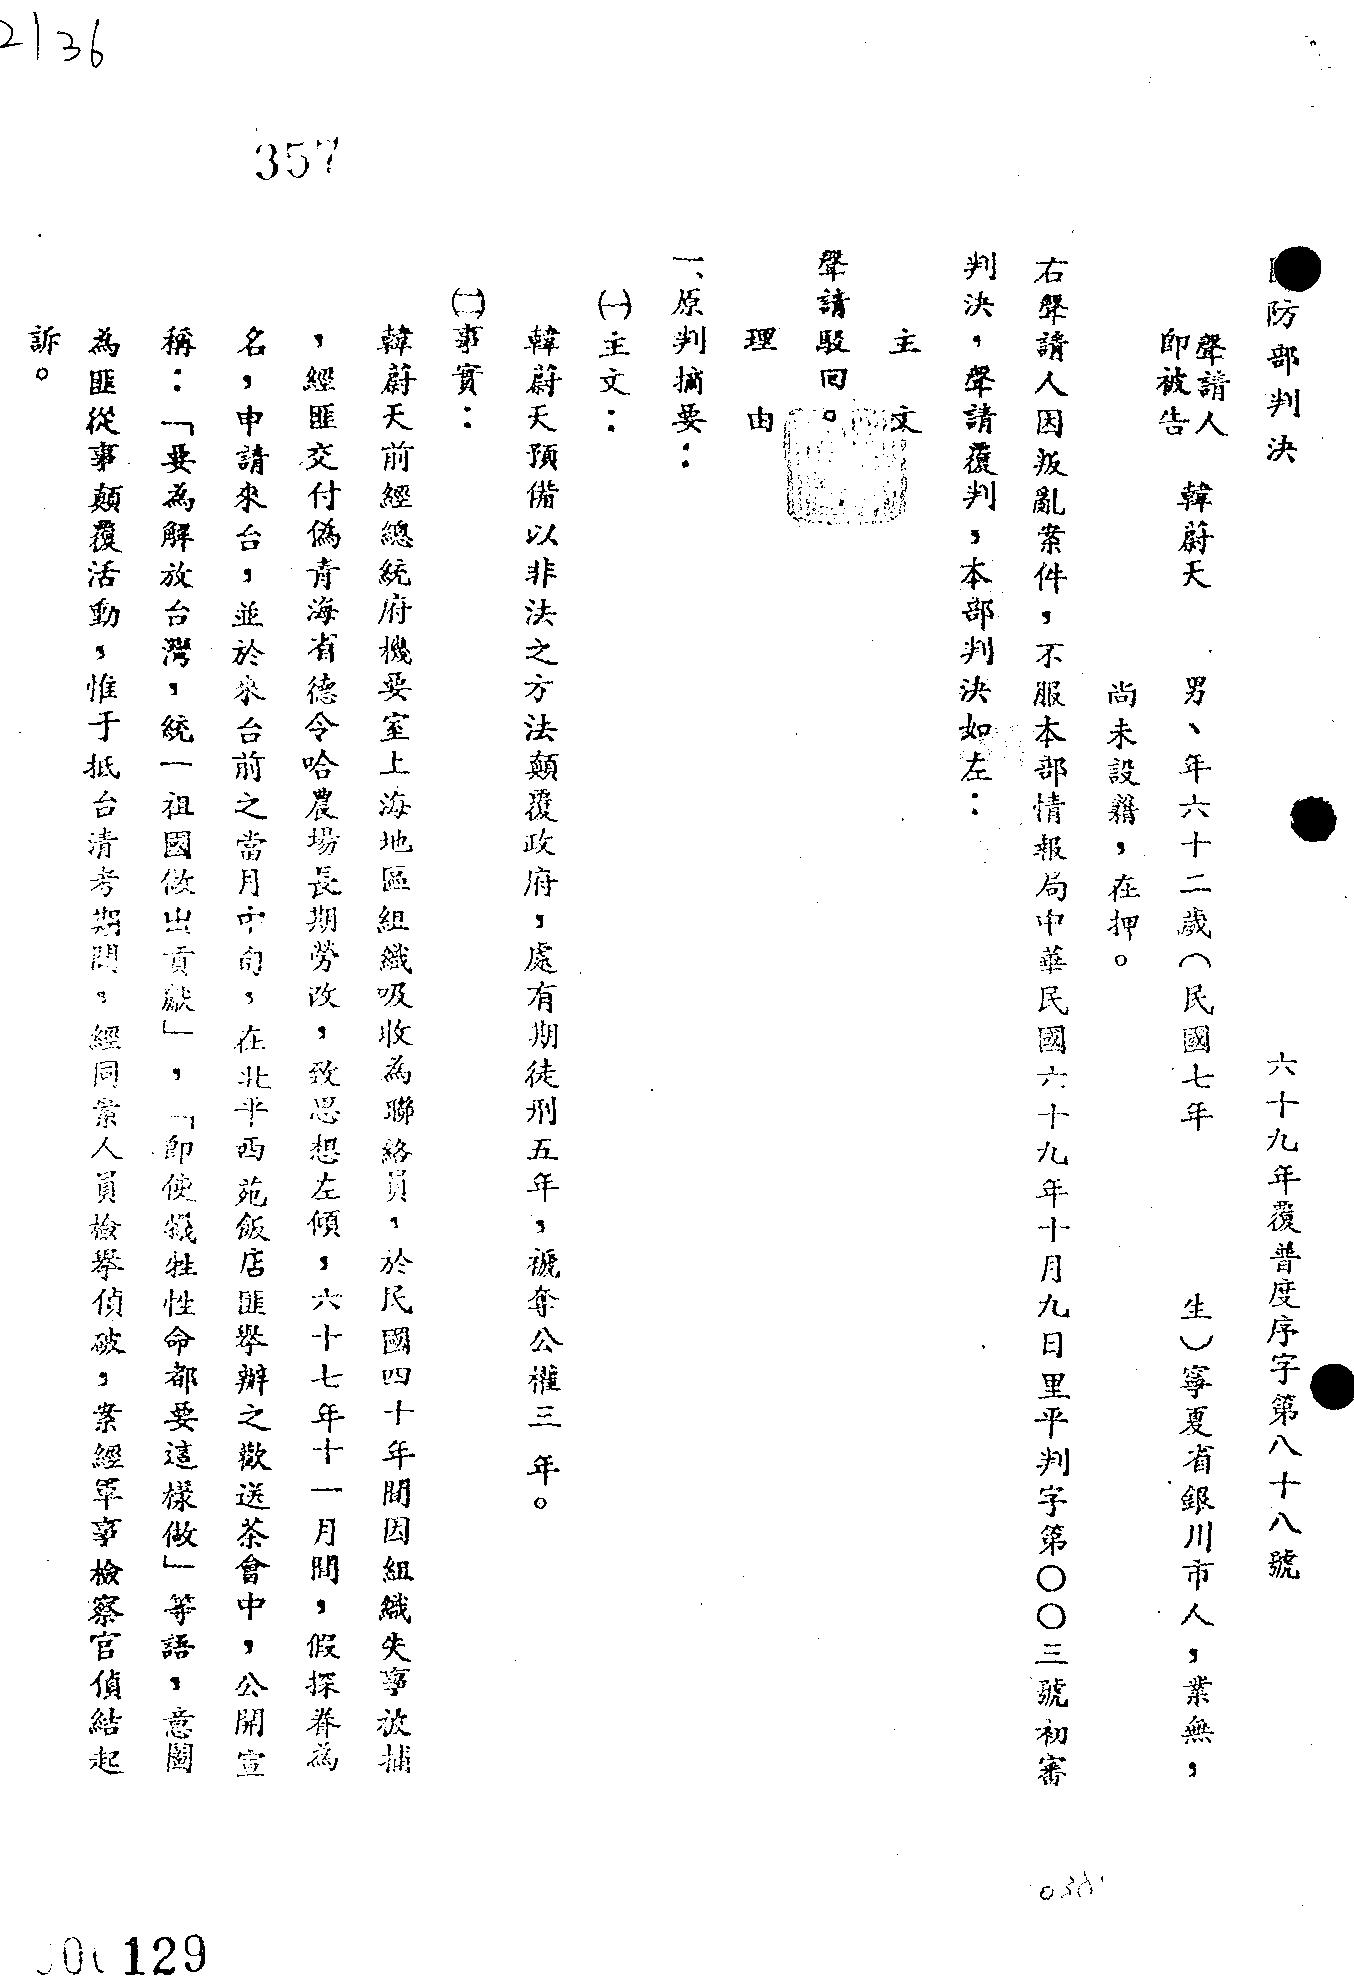 2136
357
國防部判決　六十九年覆普度序字第八十八號
聲請人
即被告　韓蔚天　男、年六十二歲（民國七年　生）寧夏省銀川市人，業無，
尚未設籍，在押。
右聲請人因叛亂案件，不服本部情報局中華民國六十九年十月九日里平判字第〇〇三號初審
判決，聲請覆判，本部判決如左：
主　文
聲請駁回。
理　由
一、原判摘要：
㈠主文：
韓蔚天預備以非法之方法顛覆政府，處有期徒刑五年，褫奪公權三年。
㈡事實：
韓蔚天前經總統府機要室上海地區組織吸收為聯絡員，於民國四十年間因組織失事被捕
，經匪交付偽青海省德令哈農場長期勞改，致思想左傾，六十七年十一月間，假探眷為
名，申請來台，並於來台前之當月中旬，在北平西苑飯店匪舉辦之歡送茶會中，公開宣
稱：「要為解放台灣，統一祖國做出貢獻」，「即使犧牲性命都要這樣做」等語，意圖
為匪從事顛覆活動，惟于抵台清考期間，經同案人員檢舉偵破，案經軍事檢察官偵結起
訴。
129